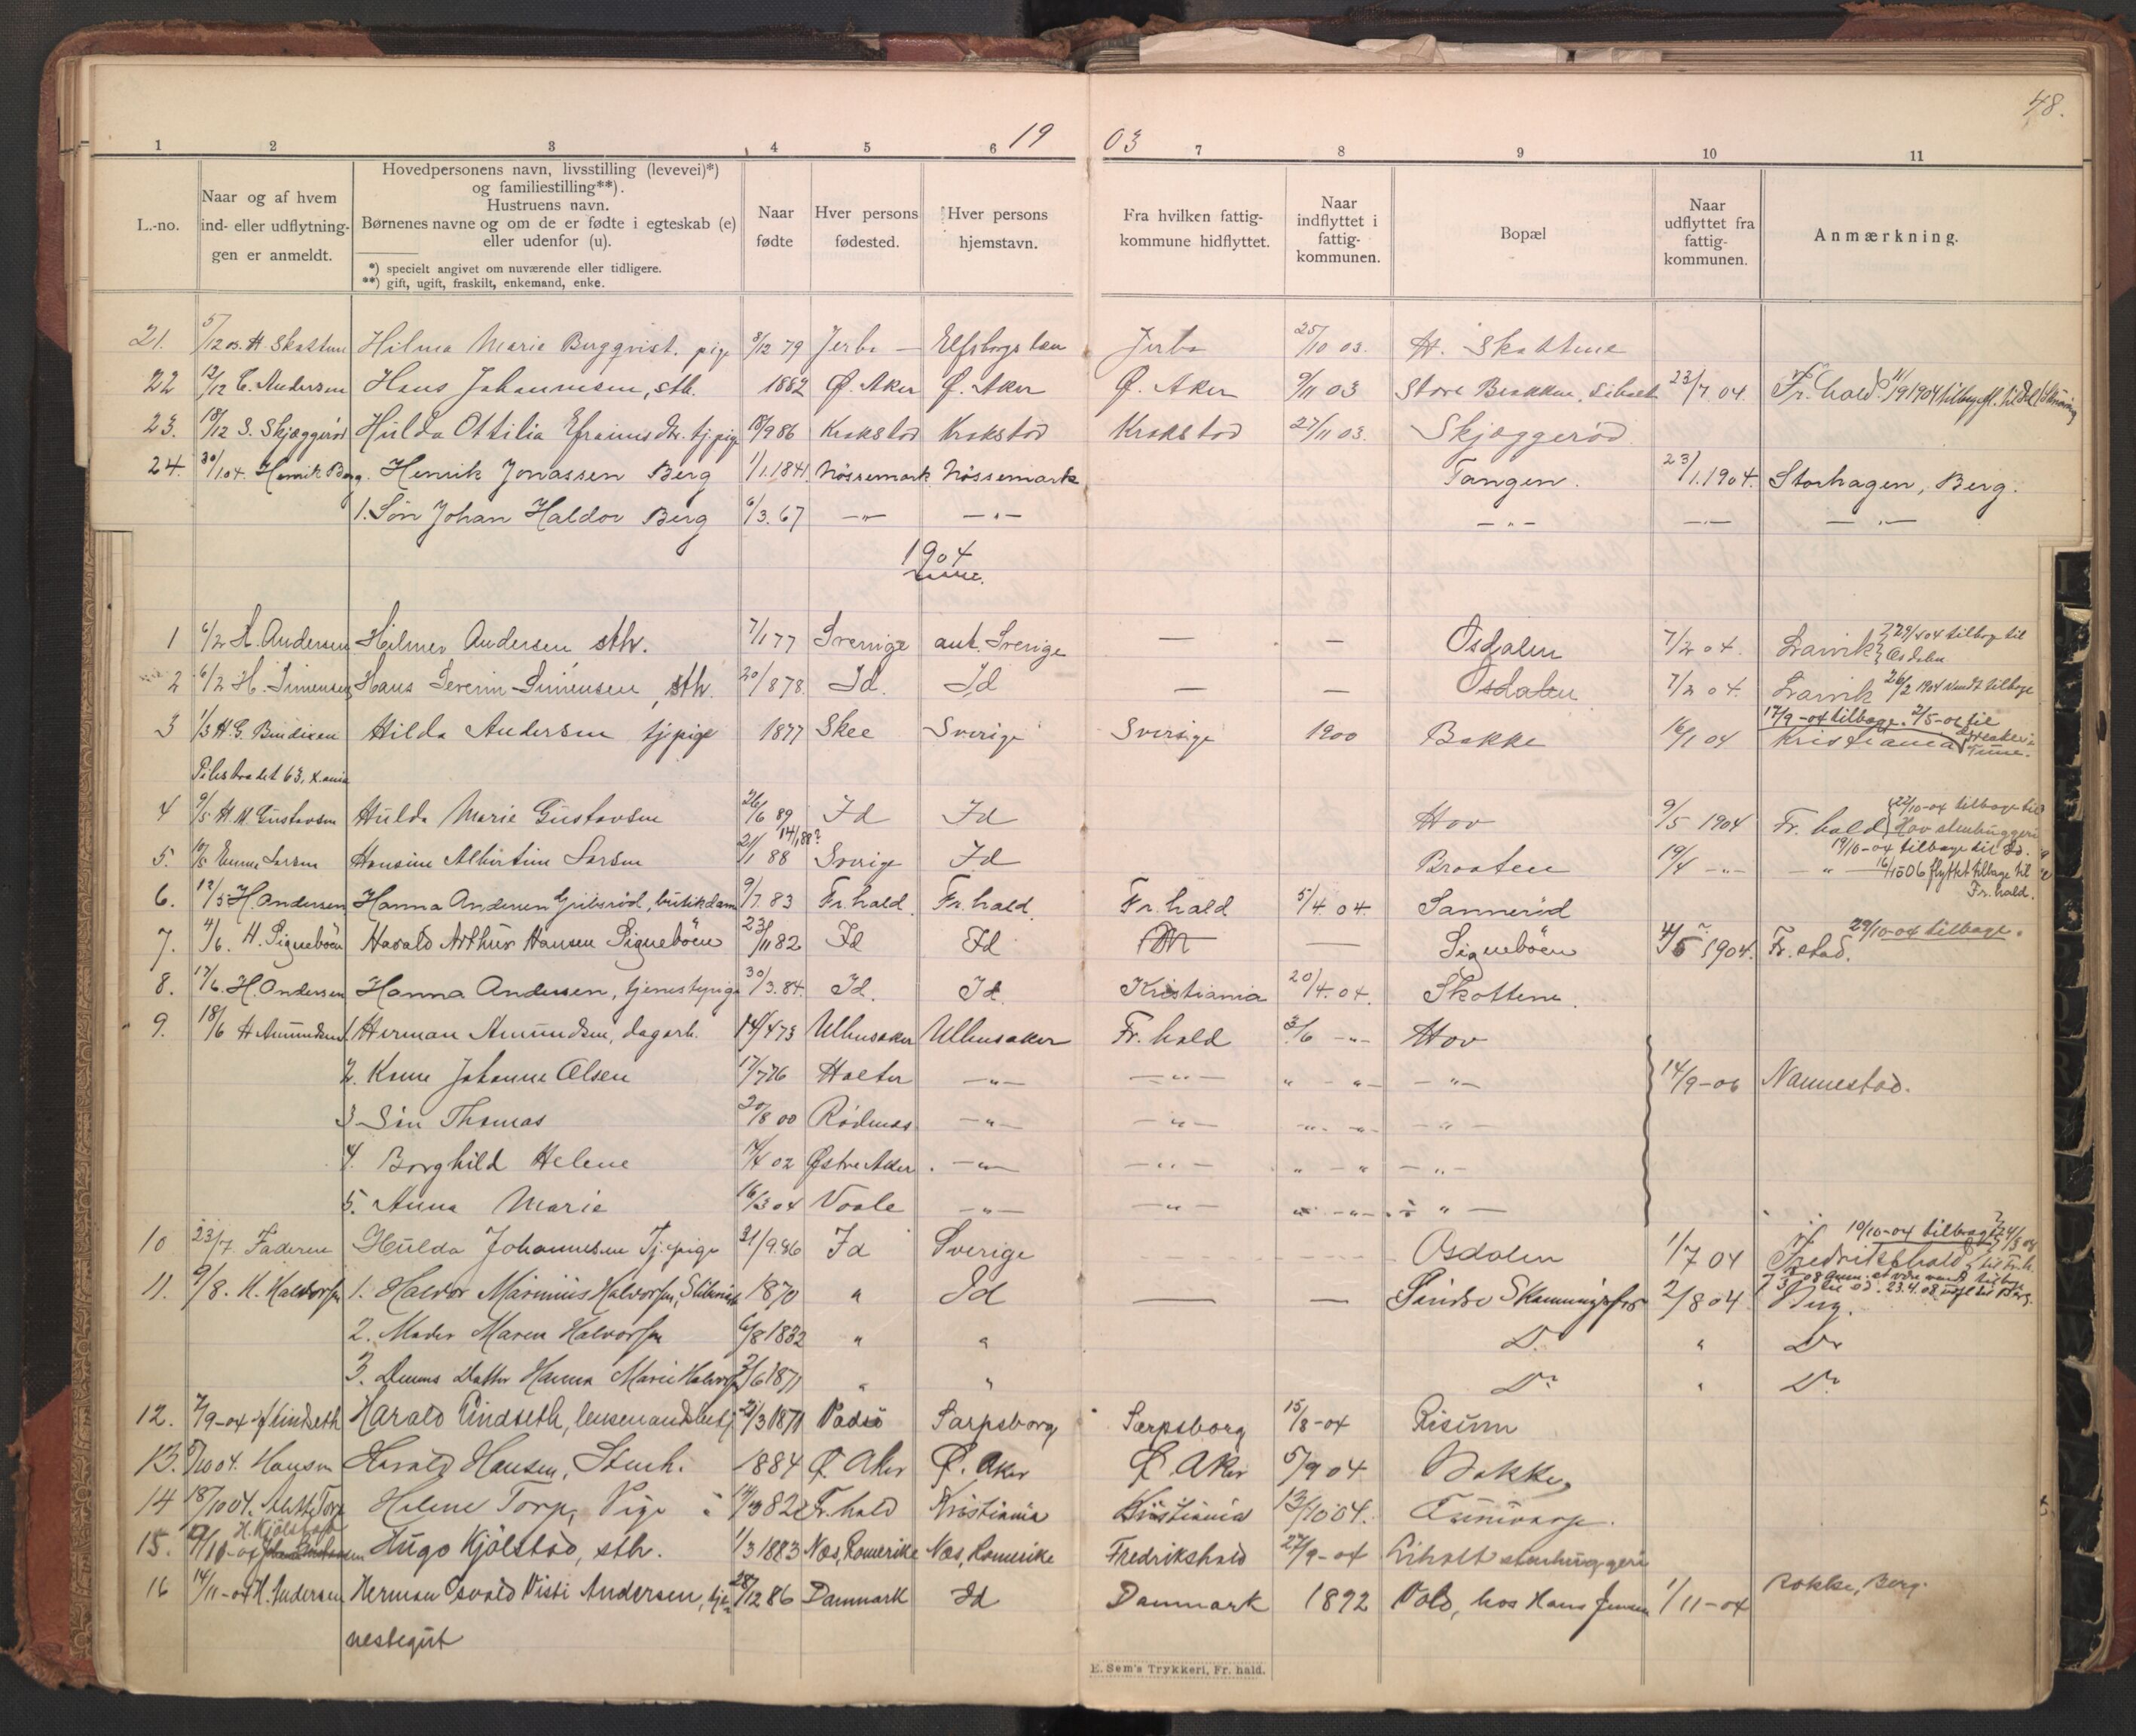 48.
19 03
1 2 3 4 5 6 7 8 9 10 11
L.-no.
Naar og af hvem
ind- eller udflytning-
gen er anmeldt.
Hovedpersonens navn, livsstilling (levevei)*)
og familiestilling**).
Hustruens navn.
Børnenes navne og om de er fødte i egteskab (e)
eller udenfor (u).
*) specielt angivet om nuværende eller tidligere.
**) gift, ugift, fraskilt, enkemand, enke.
Naar
fødte
Hver persons
fødested.
Hver persons
hjemstavn.
Fra hvilken fattig-
kommune hidflyttet.
Naar
indflyttet i
fattig-
kommunen.
Bopæl
Naar
udflyttet fra
fattig-
kommunen.
Anmærkning.
21. 5/12 03. H. Skattene Hilma Marie Bergqvist, pige 3/12 79 Jerbo — Elfsborgs læn Jerbo 25/10 03. H. Skattene
22 12/12 C. Andersen Hans Johannesen, sth. 1882 Ø. Aker Ø. Aker Ø. Aker 9/11 03 Store Brækken 23/7 04. Fr.hald
23. 18/12 S. Skjæggerød Hilda Ottilia Efraimsdtr. tj.pige 18/9 86 Krokstad Krokstad Krokstad 27/11 03. Skjæggerød
24. 30/1 04. Henrik Berg. Henrik Jonassen Berg 1/1.1841. Nössemark Nössemark Tangen. 23/1.1904. Storhagen, Berg.
1. Søn Johan Haldor Berg 6/3.67 —"— —"— —"— —"— —"—
1904
1 6/2 H. Andersen Hilmer Andersen sth. 7/1 77 Sverige ant. Sverige — — Osdalen 7/2 04. Larvik 29/4 04 tilbage til Osdalen
2 6/2 H. Simensen Hans Severin Simensen, sth. 20/8 78. Id. Id — — Osdalen 7/2 04. Larvik 26/2 1904 vendt tilbage
3 1/3 H. G. Bendixen Hilda Andersen tj.pige 1877 Skee Sverige Sverige 1900 Bakke 16/1 04 Kristiania 17/9-04 tilbage. 2/5-06 til Greaker i Tune.
Pilestrædet 63, X.ania
4 9/5 H. M. Gustavsen Hulda Marie Gustavsen 26/6 89 Id Id Hov 9/5 1904 Fr. hald 22/10-04 tilbage til Hov stenhuggeri
5. 10/5 Emma Larsen Hansine Albertine Larsen 21/1 88 14/1 88? Sverige Id Braaten 19/4 —"— —"— 19/10-04 tilbage til Id.
16/10 06 flyttet tilbage til Fr.hald.
6. 12/5 H. Andersen Hanna Andersen Gribsrød, butikdame 9/7.83 Fr.hald. Fr.hald. Fr.hald 5/4.04. Sannerød
7. 4/6. H. Signebøen Harald Arthur Hansen Signebøen 23/11 82 Id Id — Signebøen 4/5 1904. Fr.stad. 29/10-04 tilbage.
8. 17/6. H. Andersen Hanna Andersen, tjenestepige 30/3.84. Id. Id. Kristiania 20/4.04. Skottene.
9. 18/6 H Amundsen 1. Herman Amundsen, dagarb. 14/4 73 Ullensaker Ullensaker Fr. hald 3/6 —"— Hov
2. Kone Johanne Olsen 17/7 76 Holter —"— —"— " —"— —"— 14/9-06 Nannestad.
3 Søn Thomas 20/8 00 Rødenes —"— —"— " —"— —"—
4. Borghild Helene 14/4 02 Østre Aker. —"— —"— " — " —"—
5. Anna Marie 16/3 04 Vaale —"— —"— " —"— —"—
10 23/7. Faderen Hulda Johannesen Tj.pige 21/9.86 Id Sverige Osdalen 1/7 04 Fredrikshald 19/10-04 tilbage
11. 9/8. H. Halvorsen 1. Halvor Marinius Halvorsen, 1870 " Id — — Søndre 2/8 04. Berg.
2. Moder Maren Halvorsen 6/8 1832 " " Do " Do
3. Dennes Datter Hanna Marie Halvorsen 2/6 1871 " " Do " Do
12. 2/9-04 H Lindseth Harald Lindseth, lensmandsbetj. 21/3 1871 Vadsø Sarpsborg Sarpsborg 15/8-04 Risum
13. 5/10 04. Hansen Harald Hansen, Stenh. 1884 Ø. Aker Ø. Aker Ø. Aker 5/9 04 Bakke
14 18/10 04. Torp Helene Torp, Pige 82 Fr. hald Kristiania Kristiania 13/10 04.
15. H. Kjölstad Hugo Kjölstad, sth. 1/3 1883 Nes, Romerike Nes, Romerike Fredrikshald 27/9-04 Liholt stenhuggeri
16 14/11-04 H. Andersen Herman Osvald Visti Andersen, tje- 28/12 86 Danmark Id Danmark 1892 Vold, hos Hans Jensen 1/11-04 Rokke, Berg.
nestegut
E. Sem's Trykkeri, Fr. hald.